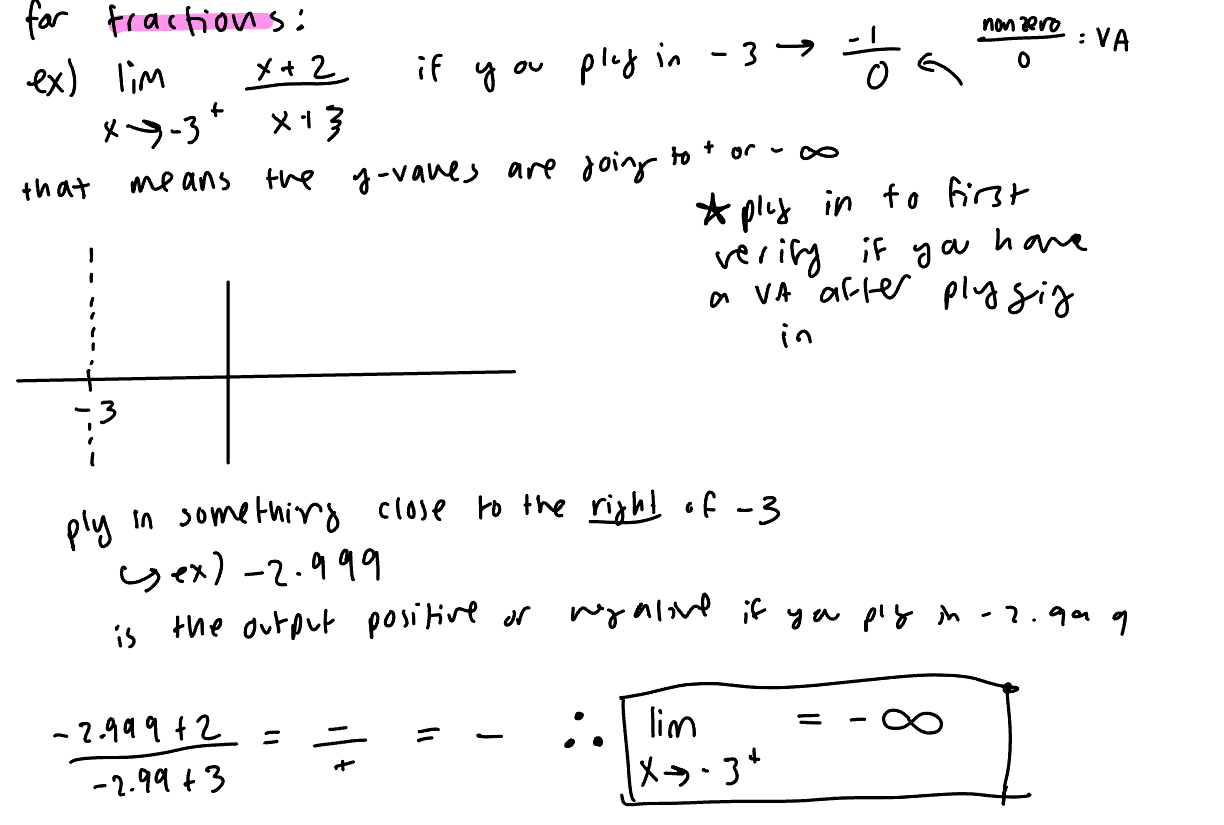 for fractions:
ex) lim x+2 if you plug in -3 → -1 nonzero : VA
x→-3⁺ x+3 0 0
that means the y-values are going to + or - ∞
★ plug in to first
verify if you have
a VA after plugging
in
-3
plug in something close to the right of -3
↳ ex) -2.999
is the output positive or negative if you plug in -2.999
-2.999+2 = - = - ∴ lim = -∞
-2.99+3 + x→-3⁺